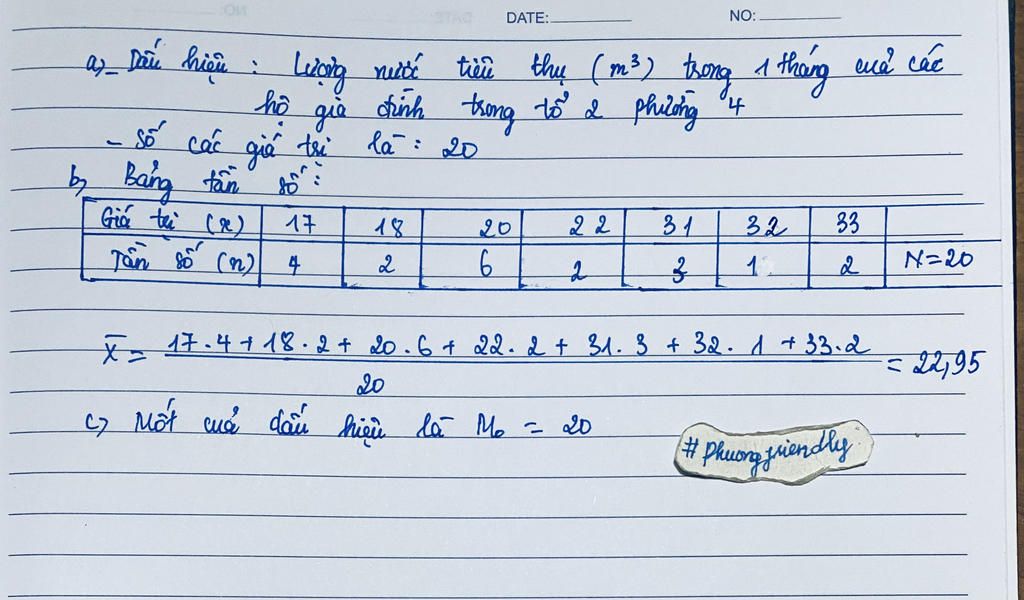 DATE: NO:
a) - Dấu hiệu : Lượng nước tiêu thụ (m³) trong 1 tháng cuả các
hộ gia đình trong tổ 2 phường 4
- Số các giá trị là : 20
b) Bảng tần số :
Giá trị (x) 17 18 20 22 31 32 33
Tần số (n) 4 2 6 2 3 1 2 N=20
X̄ = 17.4+18.2+ 20.6+ 22.2 + 31.3 +32.1 +33.2 = 22,95
20
c) Mốt cuả dấu hiệu là M₀ = 20
#phuongfriendly